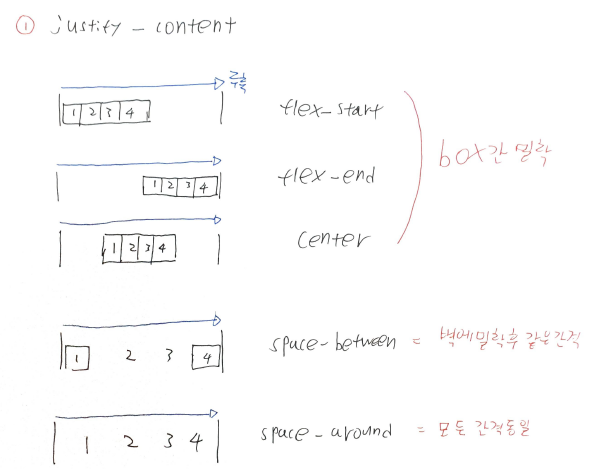 ① justify - content
주축
1 2 3 4 flex-start
1 2 3 4 flex-end
box간 밀착
1 2 3 4 center
1 2 3 4 space-between = 벽에밀착후 같은간격
1 2 3 4 space-around = 모든 간격동일